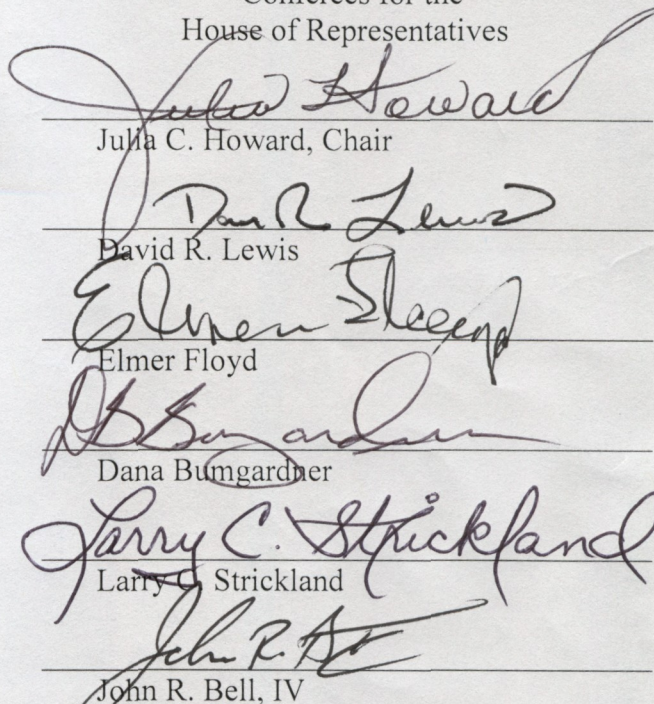 Conferees for the
House of Representatives
Julia Howard
Julia C. Howard, Chair
David R. Lewis
David R. Lewis
Elmer Floyd
Elmer Floyd
D B Bumgardner
Dana Bumgardner
Larry C. Strickland
Larry C. Strickland
John R. Bell
John R. Bell, IV